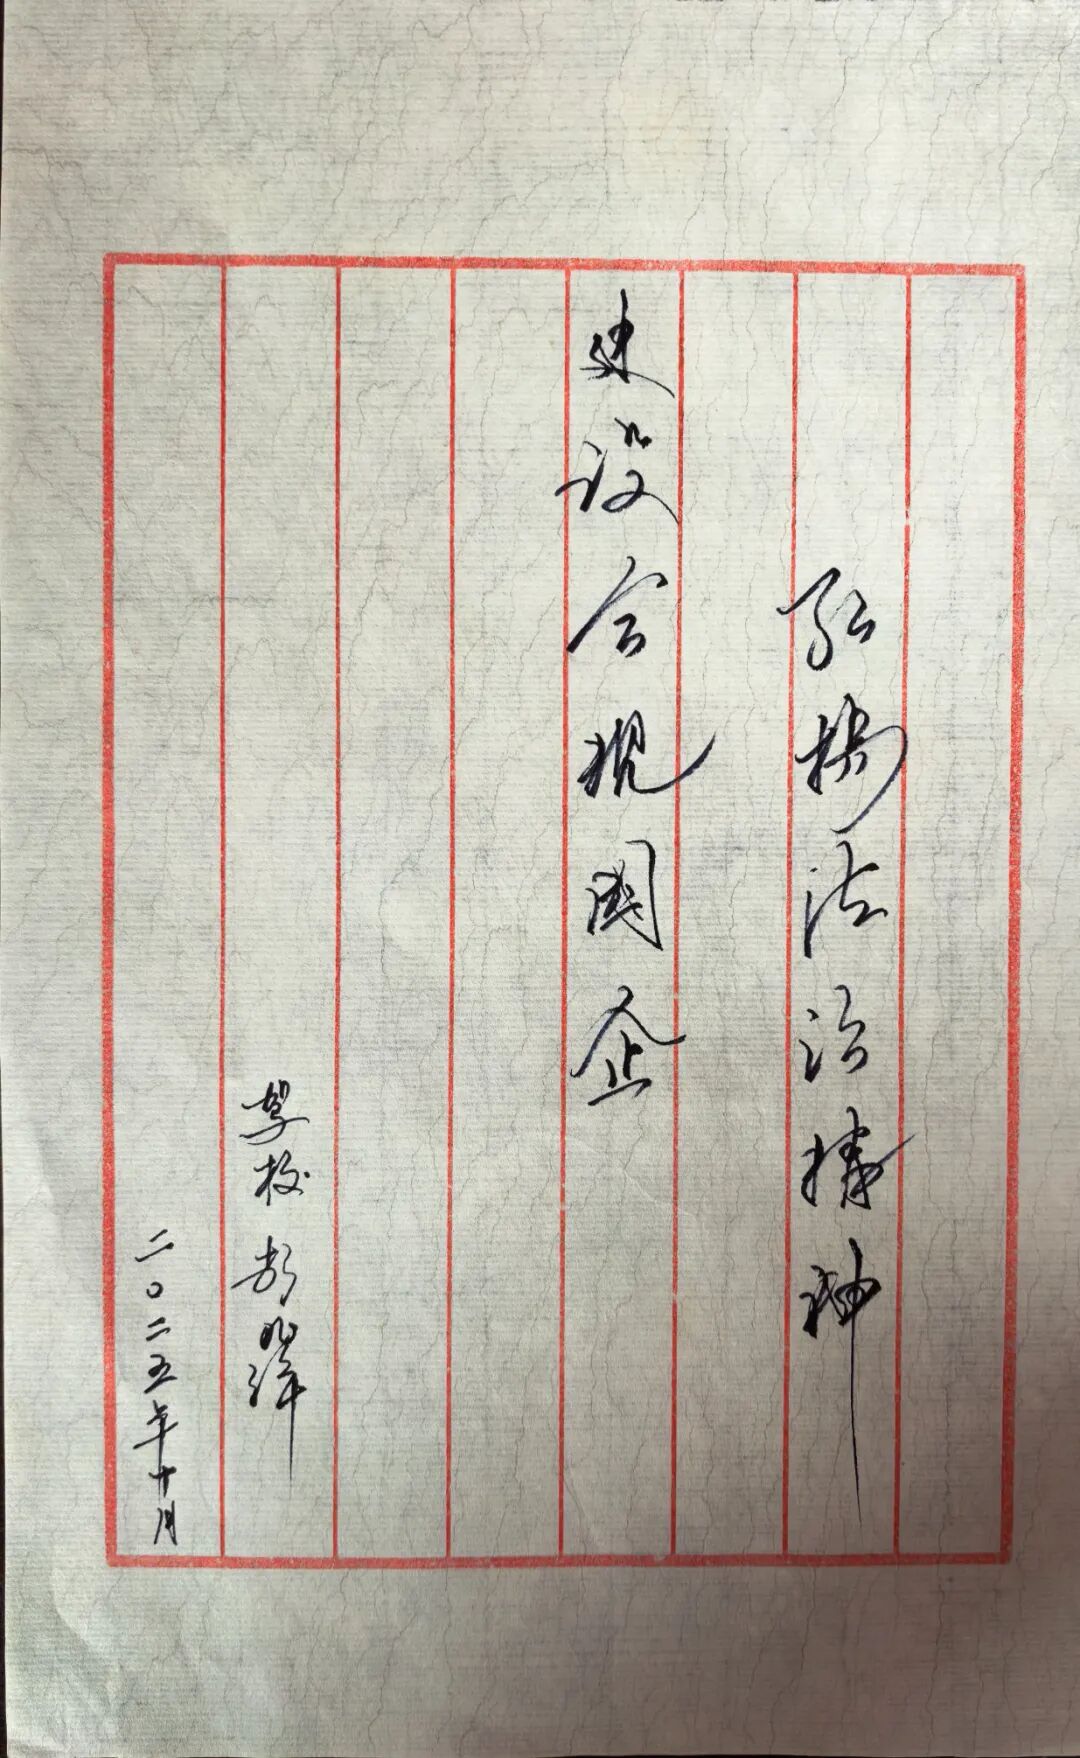 弘扬法治精神
建设合规国企
驾校
二〇二五年十月